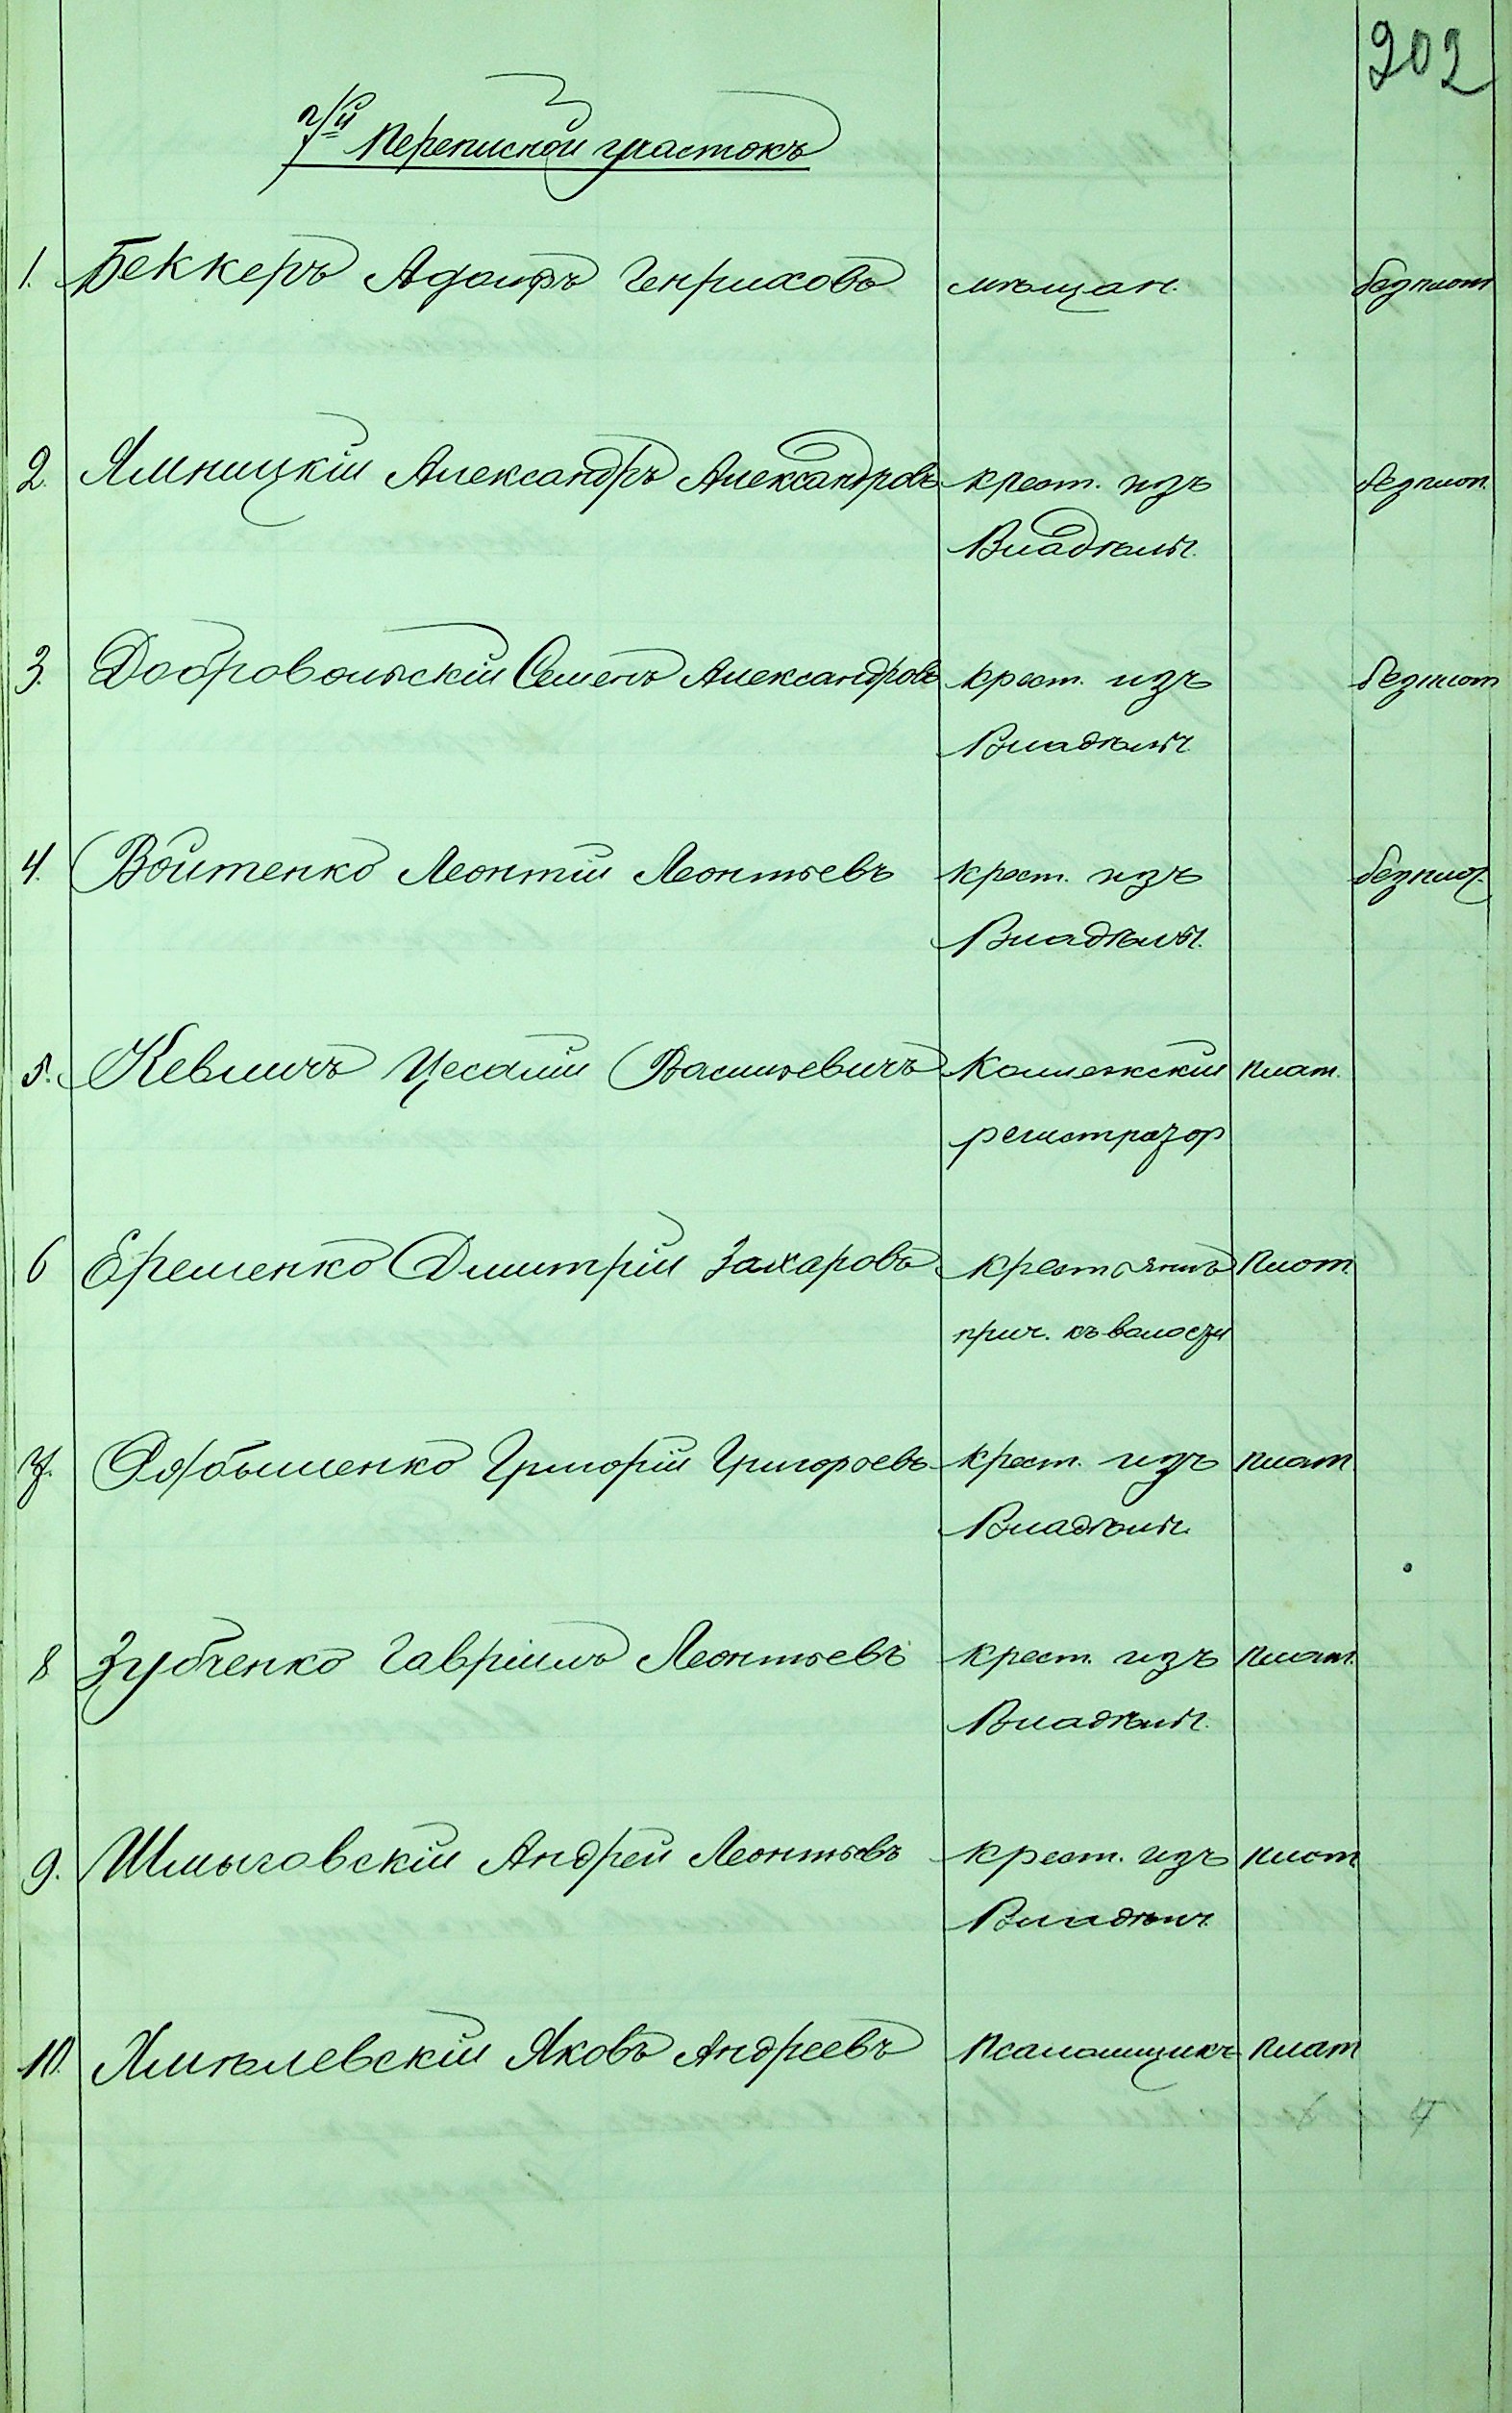 202
7й Переписной участокъ
1. Беккеръ Адольфъ Генриховъ мѣщан. безплат
2. Ямницкій Александръ Александровъ крест. изъ безплат.
Владѣльч.
3. Добровольскій Семенъ Александровъ крест. изъ безплат
Владѣльч.
4. Войтенко Леонтій Леонтьевъ крест. изъ безплат.
Владѣльч.
5. Кевличъ Цесарій Васильевичъ Коллежскій плат.
регистратор
6 Еременко Дмитрій Захаровъ крестьянинъ плат.
прич. къ волости
7. Рябышенко Григорій Григорьевъ крест. изъ плат.
Владѣльч.
8 Зубченко Гавріилъ Леонтьевъ крест. изъ плат.
Владѣльч.
9. Шмыговскій Андрей Леонтьевъ крест. изъ плат
Владѣльч.
10. Хмѣлевскій Яковъ Андреевъ псаломщикъ плат
6 4